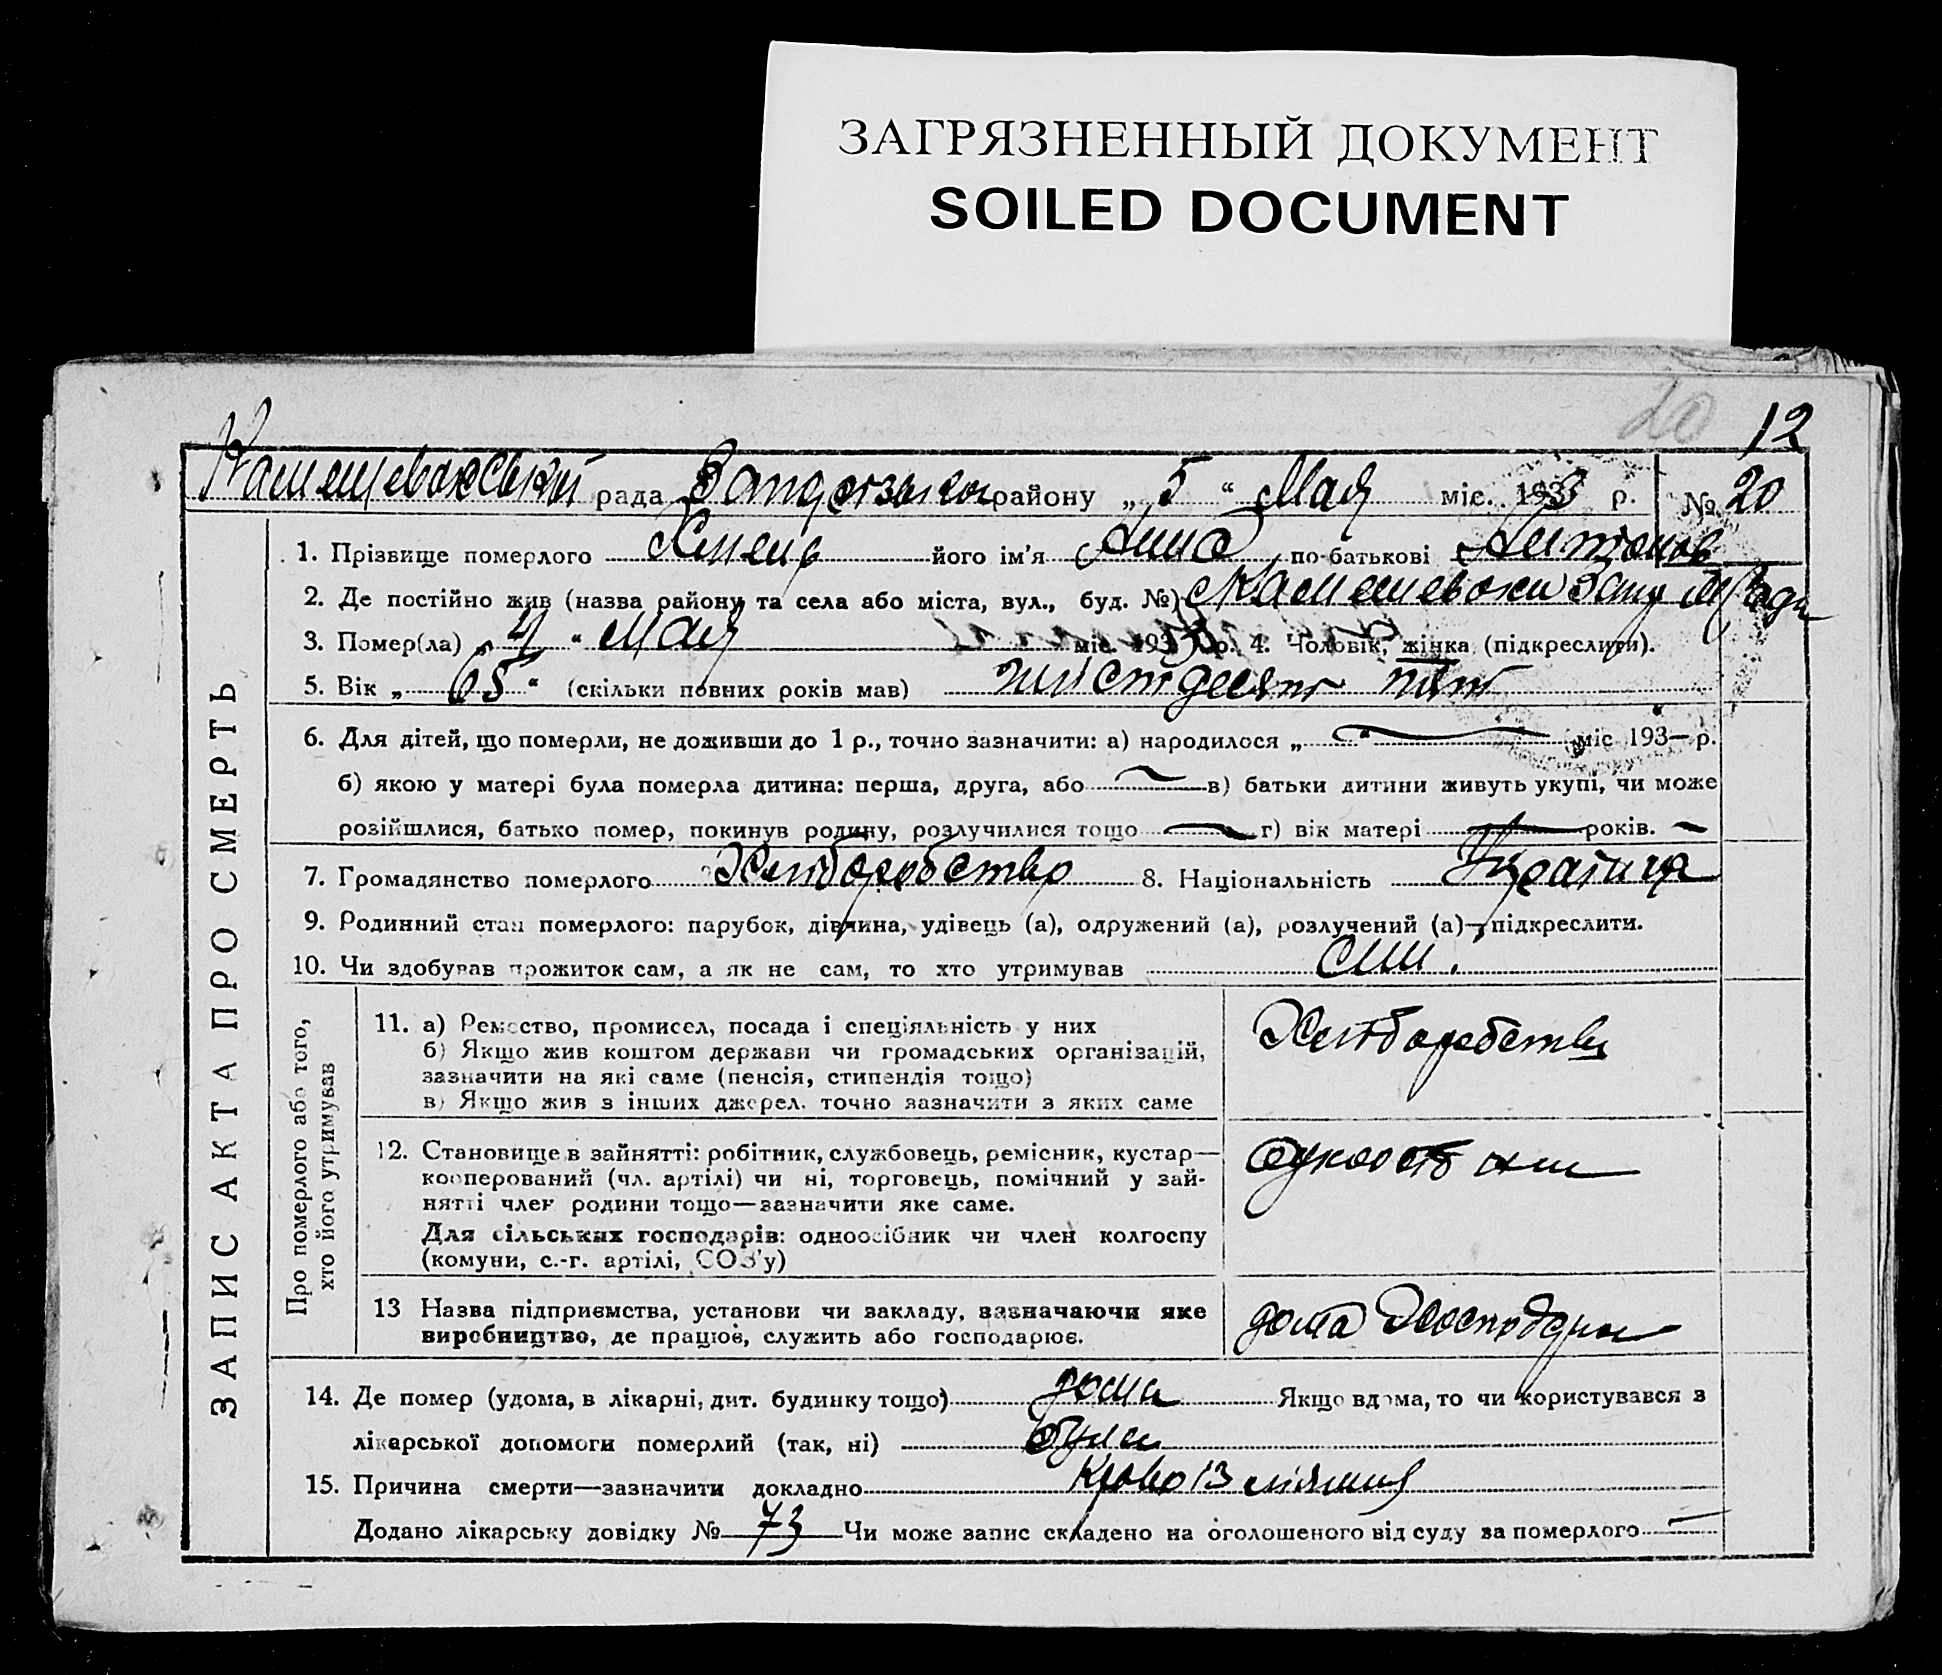 ЗАГРЯЗНЕННЫЙ ДОКУМЕНТ
SOILED DOCUMENT
20 12
рада району „ 5 “ Мая міс. 193 р. № 20
1. Прізвище померлого Хмель його ім’я Анна по-батькові Антонов
2. Де постійно жив (назва району та села або міста, вул., буд. №)
3. Помер(ла) „ 4 “ Мая міс. 193 р. 4. Чоловік, жінка (підкреслити).
5. Вік „ 65 “ (скільки повних років мав) шістдесят пят
6. Для дітей, що померли, не доживши до 1 р., точно зазначити: а) народилося „ “ міс 193— р.
б) якою у матері була померла дитина: перша, друга, або в) батьки дитини живуть укупі, чи може
розійшлися, батько помер, покинув родину, розлучилися тощо г) вік матері років.
7. Громадянство померлого Хліборобство 8. Національність
9. Родинний стан померлого: парубок, дівчина, удівець (а), одружений (а), розлучений (а)—підкреслити.
10. Чи здобував прожиток сам, а як не сам, то хто утримував
ЗАПИС АКТА ПРО СМЕРТЬ
Про померлого або того,
хто його утримував
11. а) Ремество, промисел, посада і спеціяльність у них
б) Якщо жив коштом держави чи громадських організацій,
зазначити на які саме (пенсія, стипендія тощо)
в) Якщо жив з інших джерел, точно зазначити з яких саме
Хліборобство
12. Становище в зайнятті: робітник, службовець, ремісник, кустар—
кооперований (чл. артілі) чи ні, торговець, помічний у зай-
нятті член родини тощо—зазначити яке саме.
Для сільських господарів: одноосібник чи член колгоспу
(комуни, с.-г. артілі, СОЗ’у)
13 Назва підприємства, установи чи закладу, зазначаючи яке
виробництво, де працює, служить або господарює.
дома
14. Де помер (удома, в лікарні, дит. будинку тощо) дома Якщо вдома, то чи користувався з
лікарської допомоги померлий (так, ні)
15. Причина смерти—зазначити докладно
Додано лікарську довідку № 73 Чи може запис складено на оголошеного від суду за померлого —